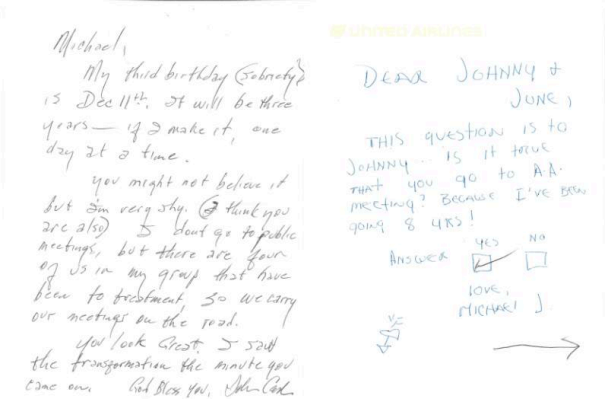 Michael,
My third birthday (sobriety)
is Dec 11th. It will be three
years — if I make it, one
day at a time.
You might not believe it
but I'm very shy. (I think you
are also) I dont go to public
meetings, but there are four
of us in my group that have
been to treatment, so we carry
our meetings on the road.
You look Great. I saw
the transformation the minute you
came on. God Bless You, John Cash
United Airlines
DEAR JOHNNY &
JUNE,
THIS QUESTION IS TO
JOHNNY. IS IT TRUE
THAT YOU GO TO A.A.
MEETING? BECAUSE I'VE BEEN
GOING 8 YRS!
ANSWER YES NO
LOVE,
MICHAEL J.